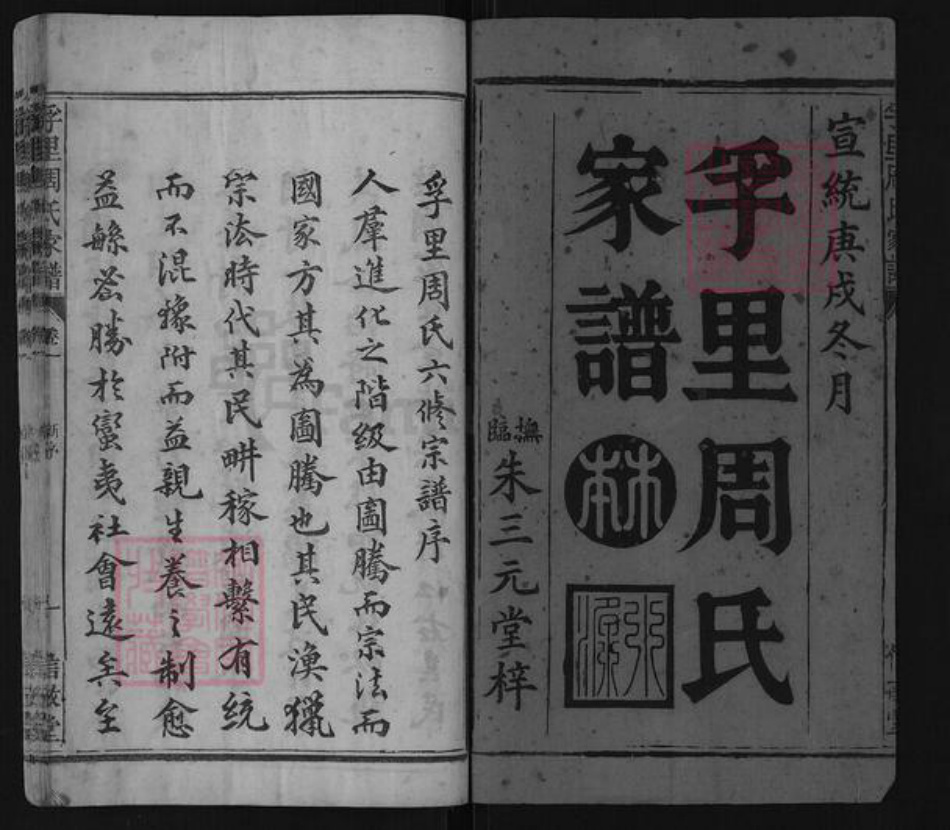 宣統庚戌冬月
孚里周氏
家譜
撫臨
朱三元堂梓
孚里周氏六修宗譜序
人羣進化之階級由圖騰而宗法而
國家方其為圖騰也其民漁獵
宗法時代其民畊稼相繫有統
而不混猱附而益親生養之制愈
益繇密勝於蠻夷社會遠矣至
孚里周氏家譜
卷一